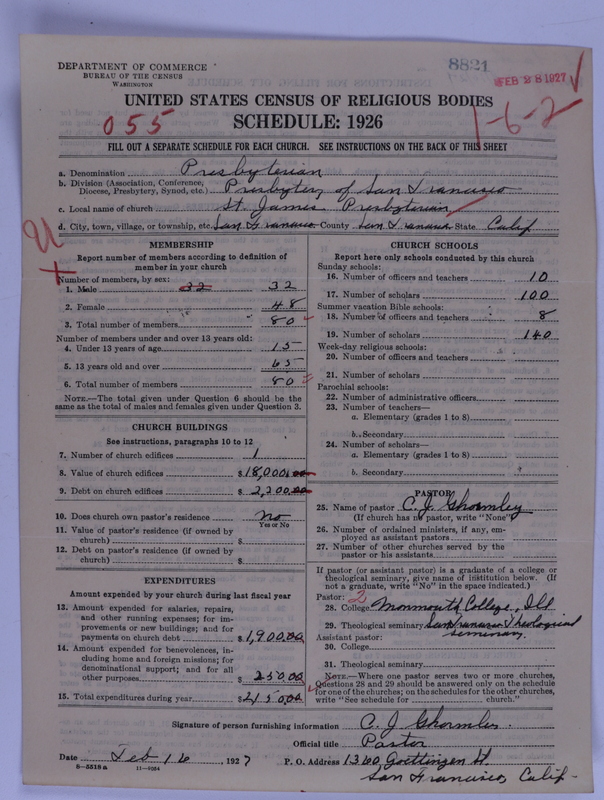 DEPARTMENT OF COMMERCE
BUREAU OF THE CENSUS
WASHINGTON
8821
FEB 28 1927
UNITED STATES CENSUS OF RELIGIOUS BODIES
SCHEDULE: 1926
055
1-6-2
FILL OUT A SEPARATE SCHEDULE FOR EACH CHURCH. SEE INSTRUCTIONS ON THE BACK OF THIS SHEET
a. Denomination Presbyterian
b. Division (Association, Conference, Diocese, Presbytery, Synod, etc.) Presbytery of San Francisco
c. Local name of church St. James Presbyterian
d. City, town, village, or township, etc. San Francisco County San Francisco State Calif
MEMBERSHIP
Report number of members according to definition of member in your church
Number of members, by sex:
1. Male 32 32
2. Female 48
3. Total number of members 80
Number of members under and over 13 years old:
4. Under 13 years of age 15
5. 13 years old and over 65
6. Total number of members 80
NOTE.—The total given under Question 6 should be the same as the total of males and females given under Question 3.
CHURCH BUILDINGS
See instructions, paragraphs 10 to 12
7. Number of church edifices 1
8. Value of church edifices $18,000.00
9. Debt on church edifices $2,200.00
10. Does church own pastor's residence No
Yes or No
11. Value of pastor's residence (if owned by church) $
12. Debt on pastor's residence (if owned by church) $
EXPENDITURES
Amount expended by your church during last fiscal year
13. Amount expended for salaries, repairs, and other running expenses; for improvements or new buildings; and for payments on church debt $1,900.00
14. Amount expended for benevolences, including home and foreign missions; for denominational support; and for all other purposes $250.00
15. Total expenditures during year
CHURCH SCHOOLS
Report here only schools conducted by this church
Sunday schools:
16. Number of officers and teachers 10
17. Number of scholars 100
Summer vacation Bible schools:
18. Number of officers and teachers 8
19. Number of scholars 140
Week-day religious schools:
20. Number of officers and teachers
21. Number of scholars
Parochial schools:
22. Number of administrative officers
23. Number of teachers—
a. Elementary (grades 1 to 8)
b. Secondary
24. Number of scholars—
a. Elementary (grades 1 to 8)
b. Secondary
PASTOR
25. Name of pastor C. J. Ghormley
(If church has no pastor, write "None")
26. Number of ordained ministers, if any, employed as assistant pastors
27. Number of other churches served by the pastor or his assistants
If pastor (or assistant pastor) is a graduate of a college or theological seminary, give name of institution below. (If not a graduate, write "No" in the space indicated.)
Pastor: 2
28. College Monmouth College, Ill
29. Theological seminary San Francisco Theological Seminary.
Assistant pastor:
30. College
31. Theological seminary
NOTE.—Where one pastor serves two or more churches, Questions 28 and 29 should be answered only on the schedule for one of the churches; on the schedules for the other churches, write "See schedule for church."
Signature of person furnishing information C. J. Ghormley.
Official title Pastor
Date Feb 16, 1927 P. O. Address 1360 Goettingen St.
San Francisco Calif-
8—5518a 11—9034